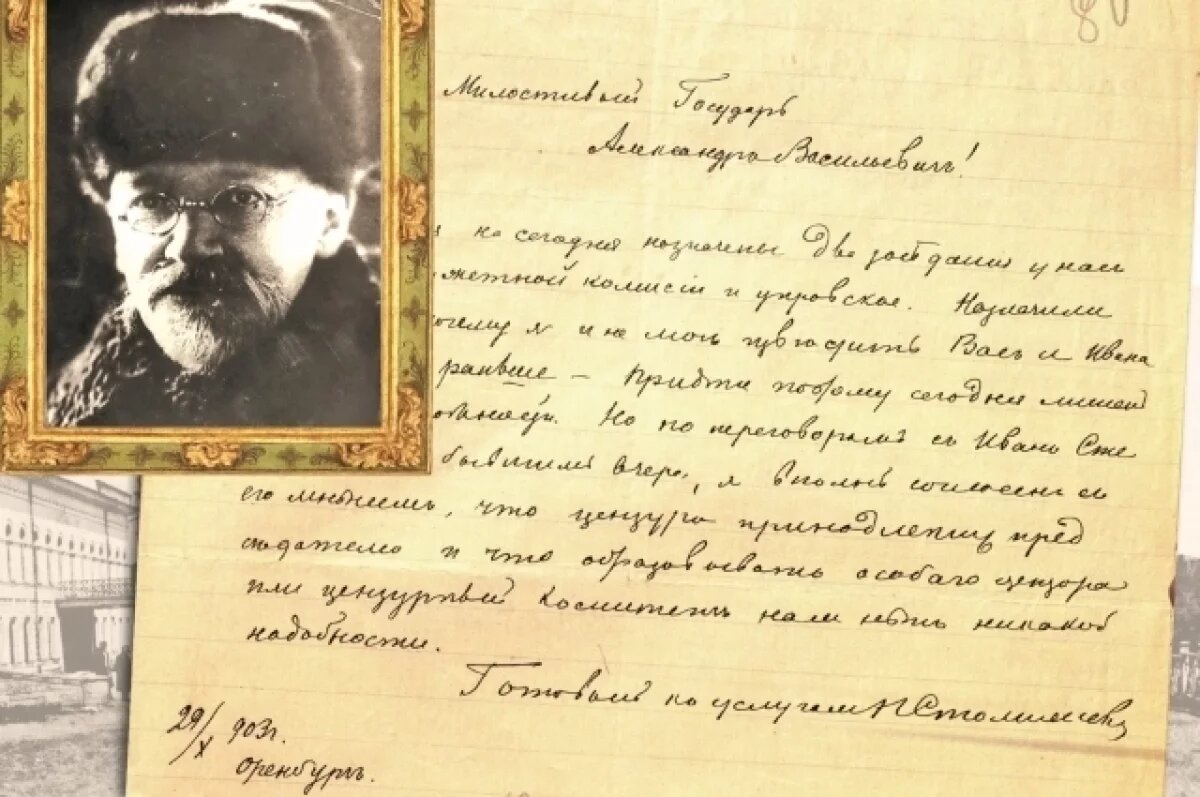 80
Милостивый Государь
Александръ Васильевичъ!
на сегодня назначены два засѣданія у насъ
мѣтной комиссіи и укровское. Назначили
почему я и не могъ извѣстить Васъ и Ивана
раньше – Придти поэтому сегодня лишенъ
Но по переговорамъ съ Ивано Сте
бывшимъ вчера, я вполнѣ согласенъ съ
его мнѣніемъ, что цензура принадлежитъ пред
сѣдателю и что образовывать особаго цензора
или цензурный комитетъ намъ нѣтъ никакой
надобности.
Готовый къ услугамъ Н Столпянскій
29/X 903 г.
Оренбургъ.